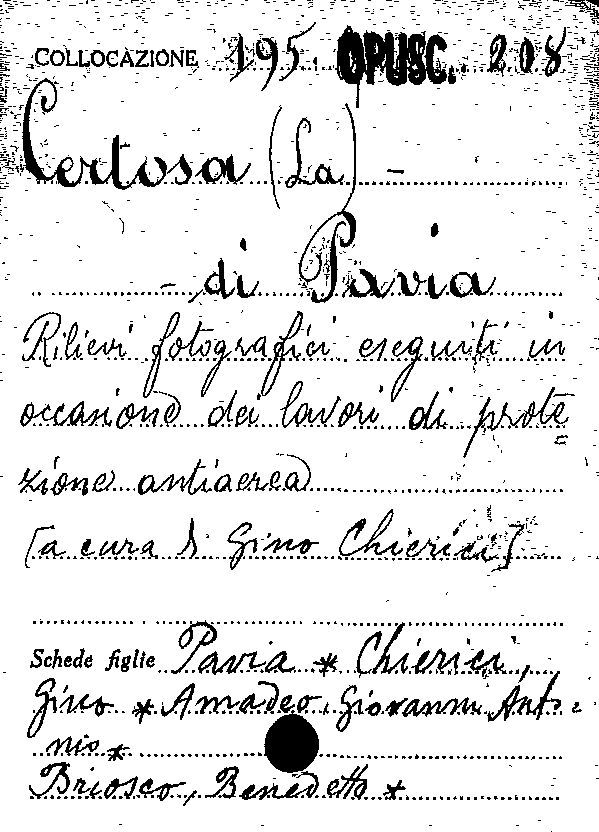 COLLOCAZIONE 195. OPUSC. 208
Certosa (La) -
- di Pavia
Rilievi fotografici eseguiti in
occasione dei lavori di prote=
zione antiaerea
[a cura di Gino Chierici]
Schede figlie Pavia * Chierici,
Gino * Amadeo, Giovanni Anto=
nio *
Briosco, Benedetto *